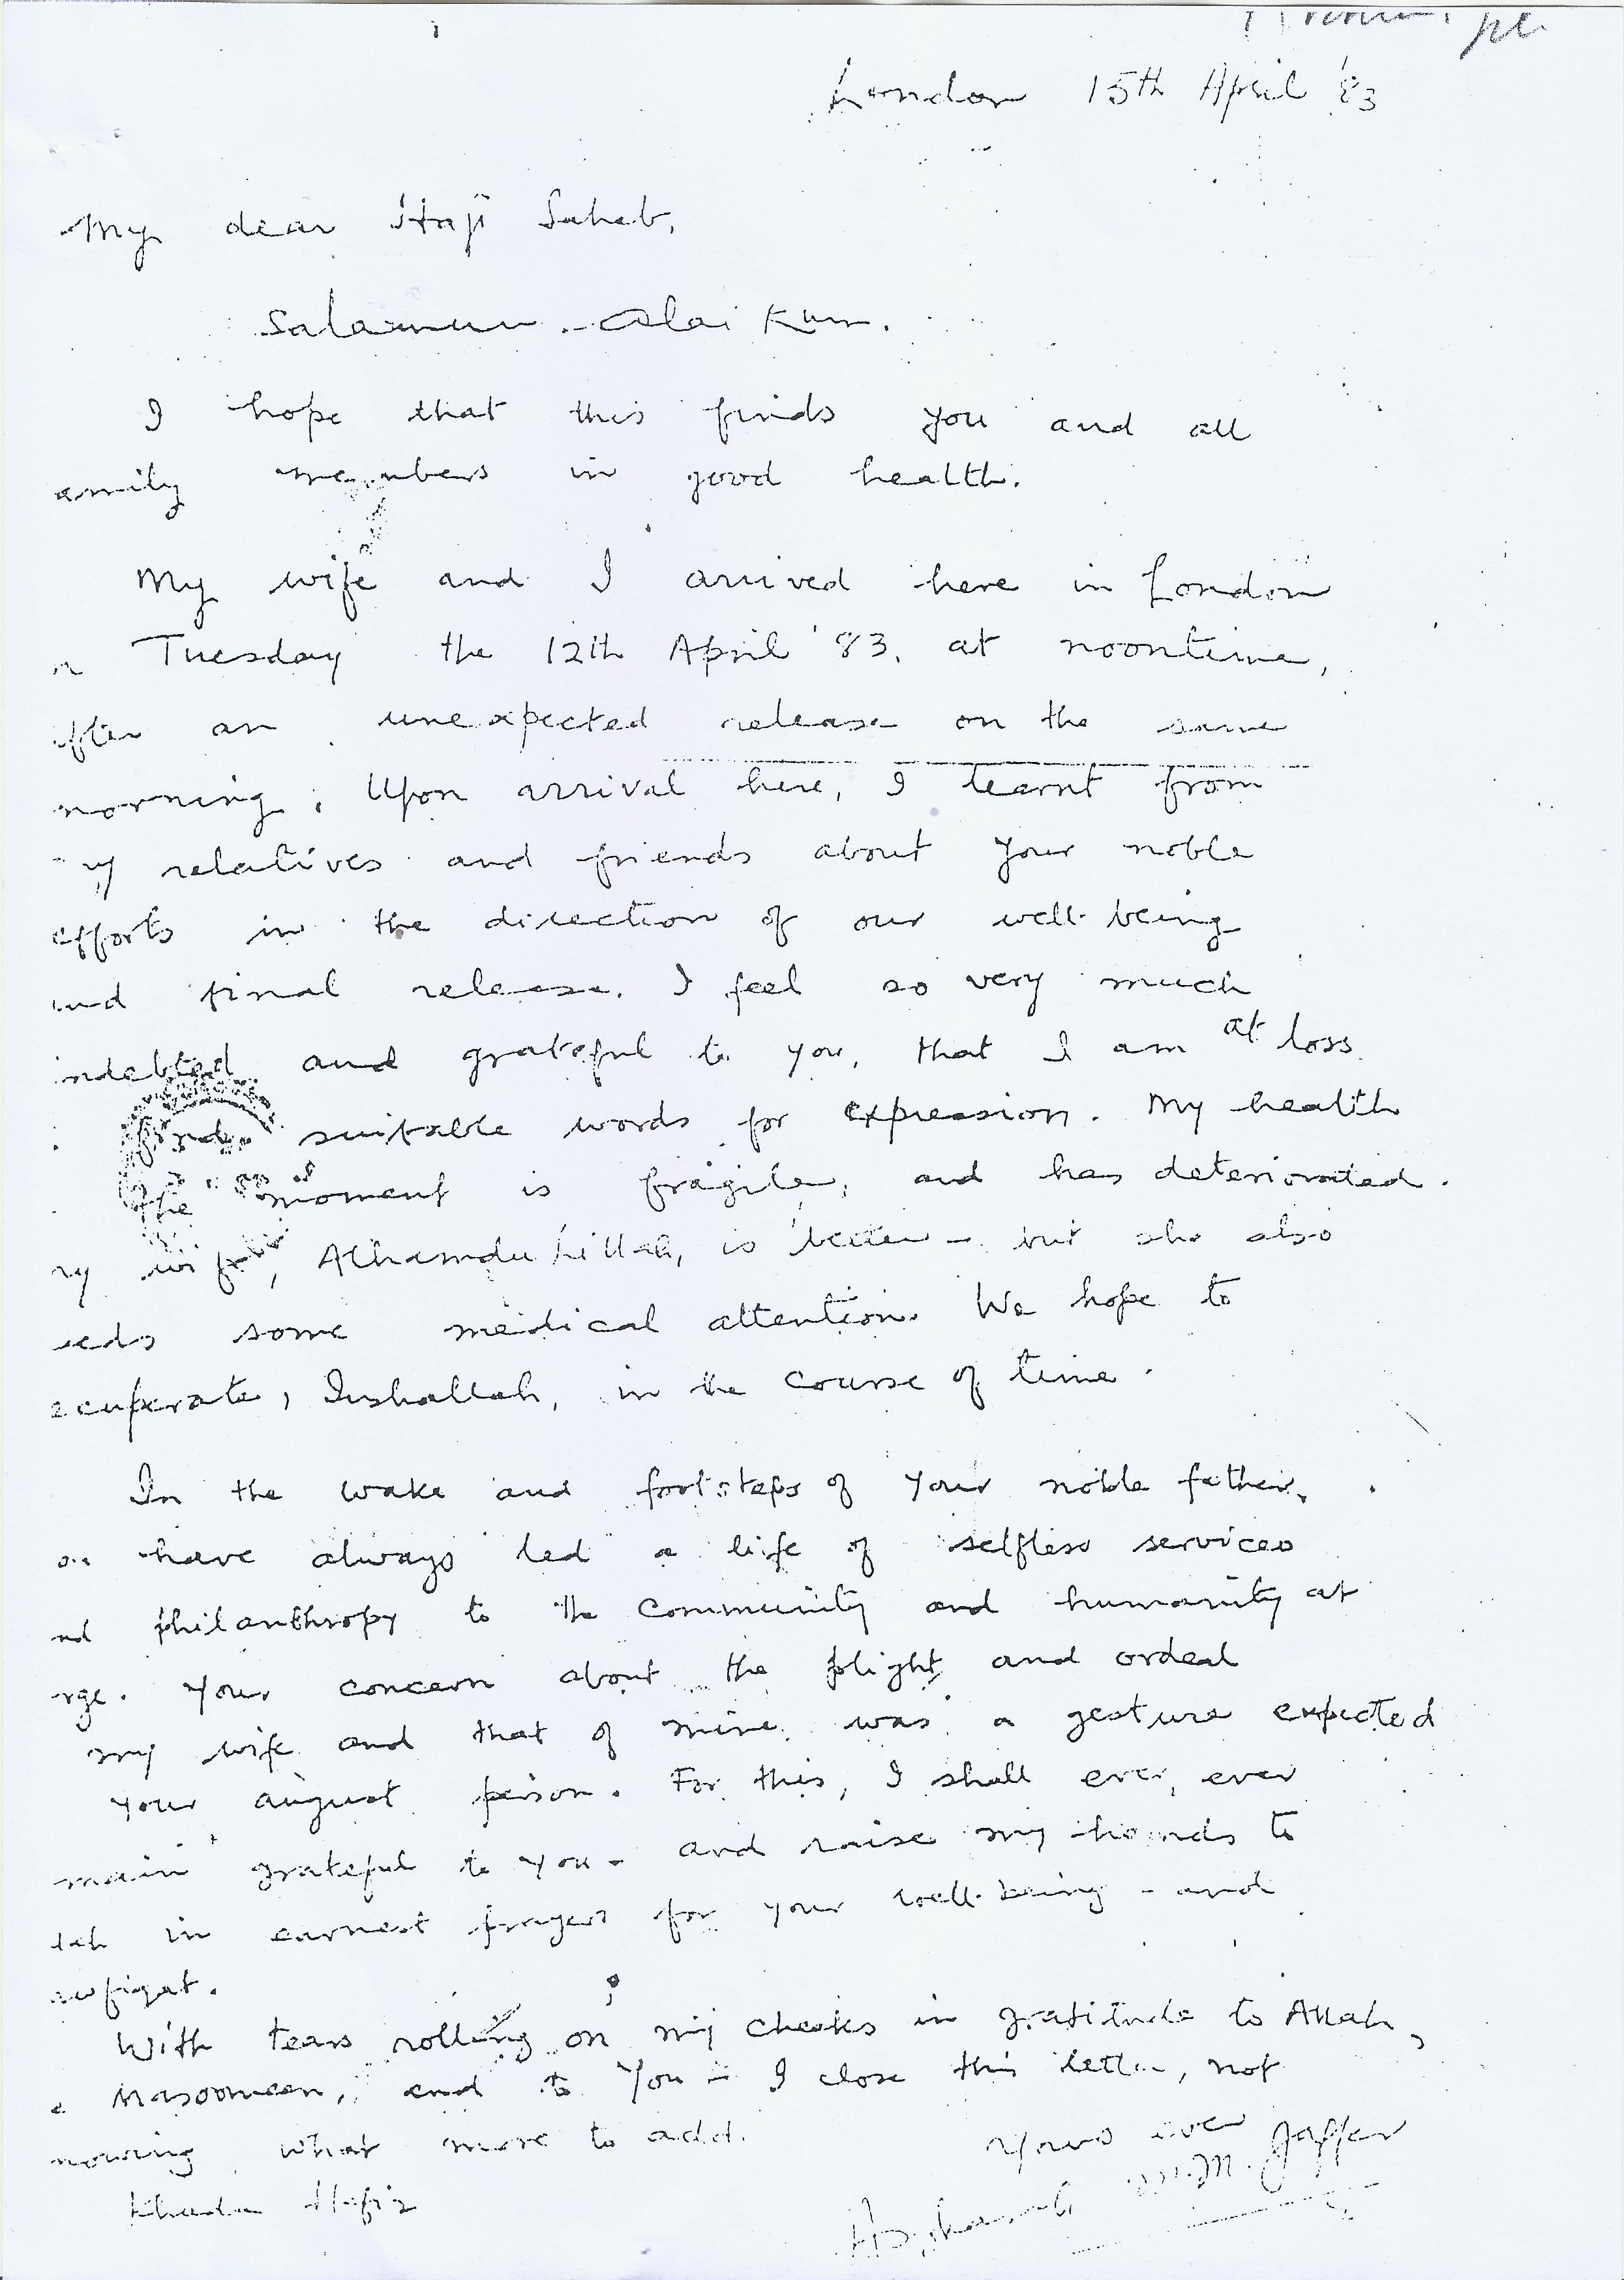 London 15th April '83
My dear Haji Saheb,
Salamun-Alaikum.
I hope that this finds you and all
amily members in good health.
My wife and I arrived here in London
n Tuesday the 12th April '83, at noontime,
after an unexpected release on the same
morning. Upon arrival here, I learnt from
my relatives and friends about your noble
efforts in the direction of our well-being
and final release. I feel so very much
indebted and grateful to you, that I am at loss
find suitable words for expression. My health
the moment is fragile, and has deteriorated.
my wife, Alhamdu Lillah, is better - but she also
eeds some medical attention. We hope to
ecuperate, Inshallah, in the course of time.
In the wake and footsteps of your noble father,
ou have always led a life of selfless services
nd philanthropy to the community and humanity at
rge. Your concern about the plight and ordeal
my wife and that of mine was a gesture expected
your august person. For this, I shall ever, ever
main grateful to you - and raise my hands to
lah in earnest prayers for your well-being - and
awfiqat.
With tears rolling on my cheeks in gratitude to Allah,
e Masoomeen, and to You - I close this letter, not
nowing what more to add.
Yours ever
Khuda Hafiz
M. Jaffer